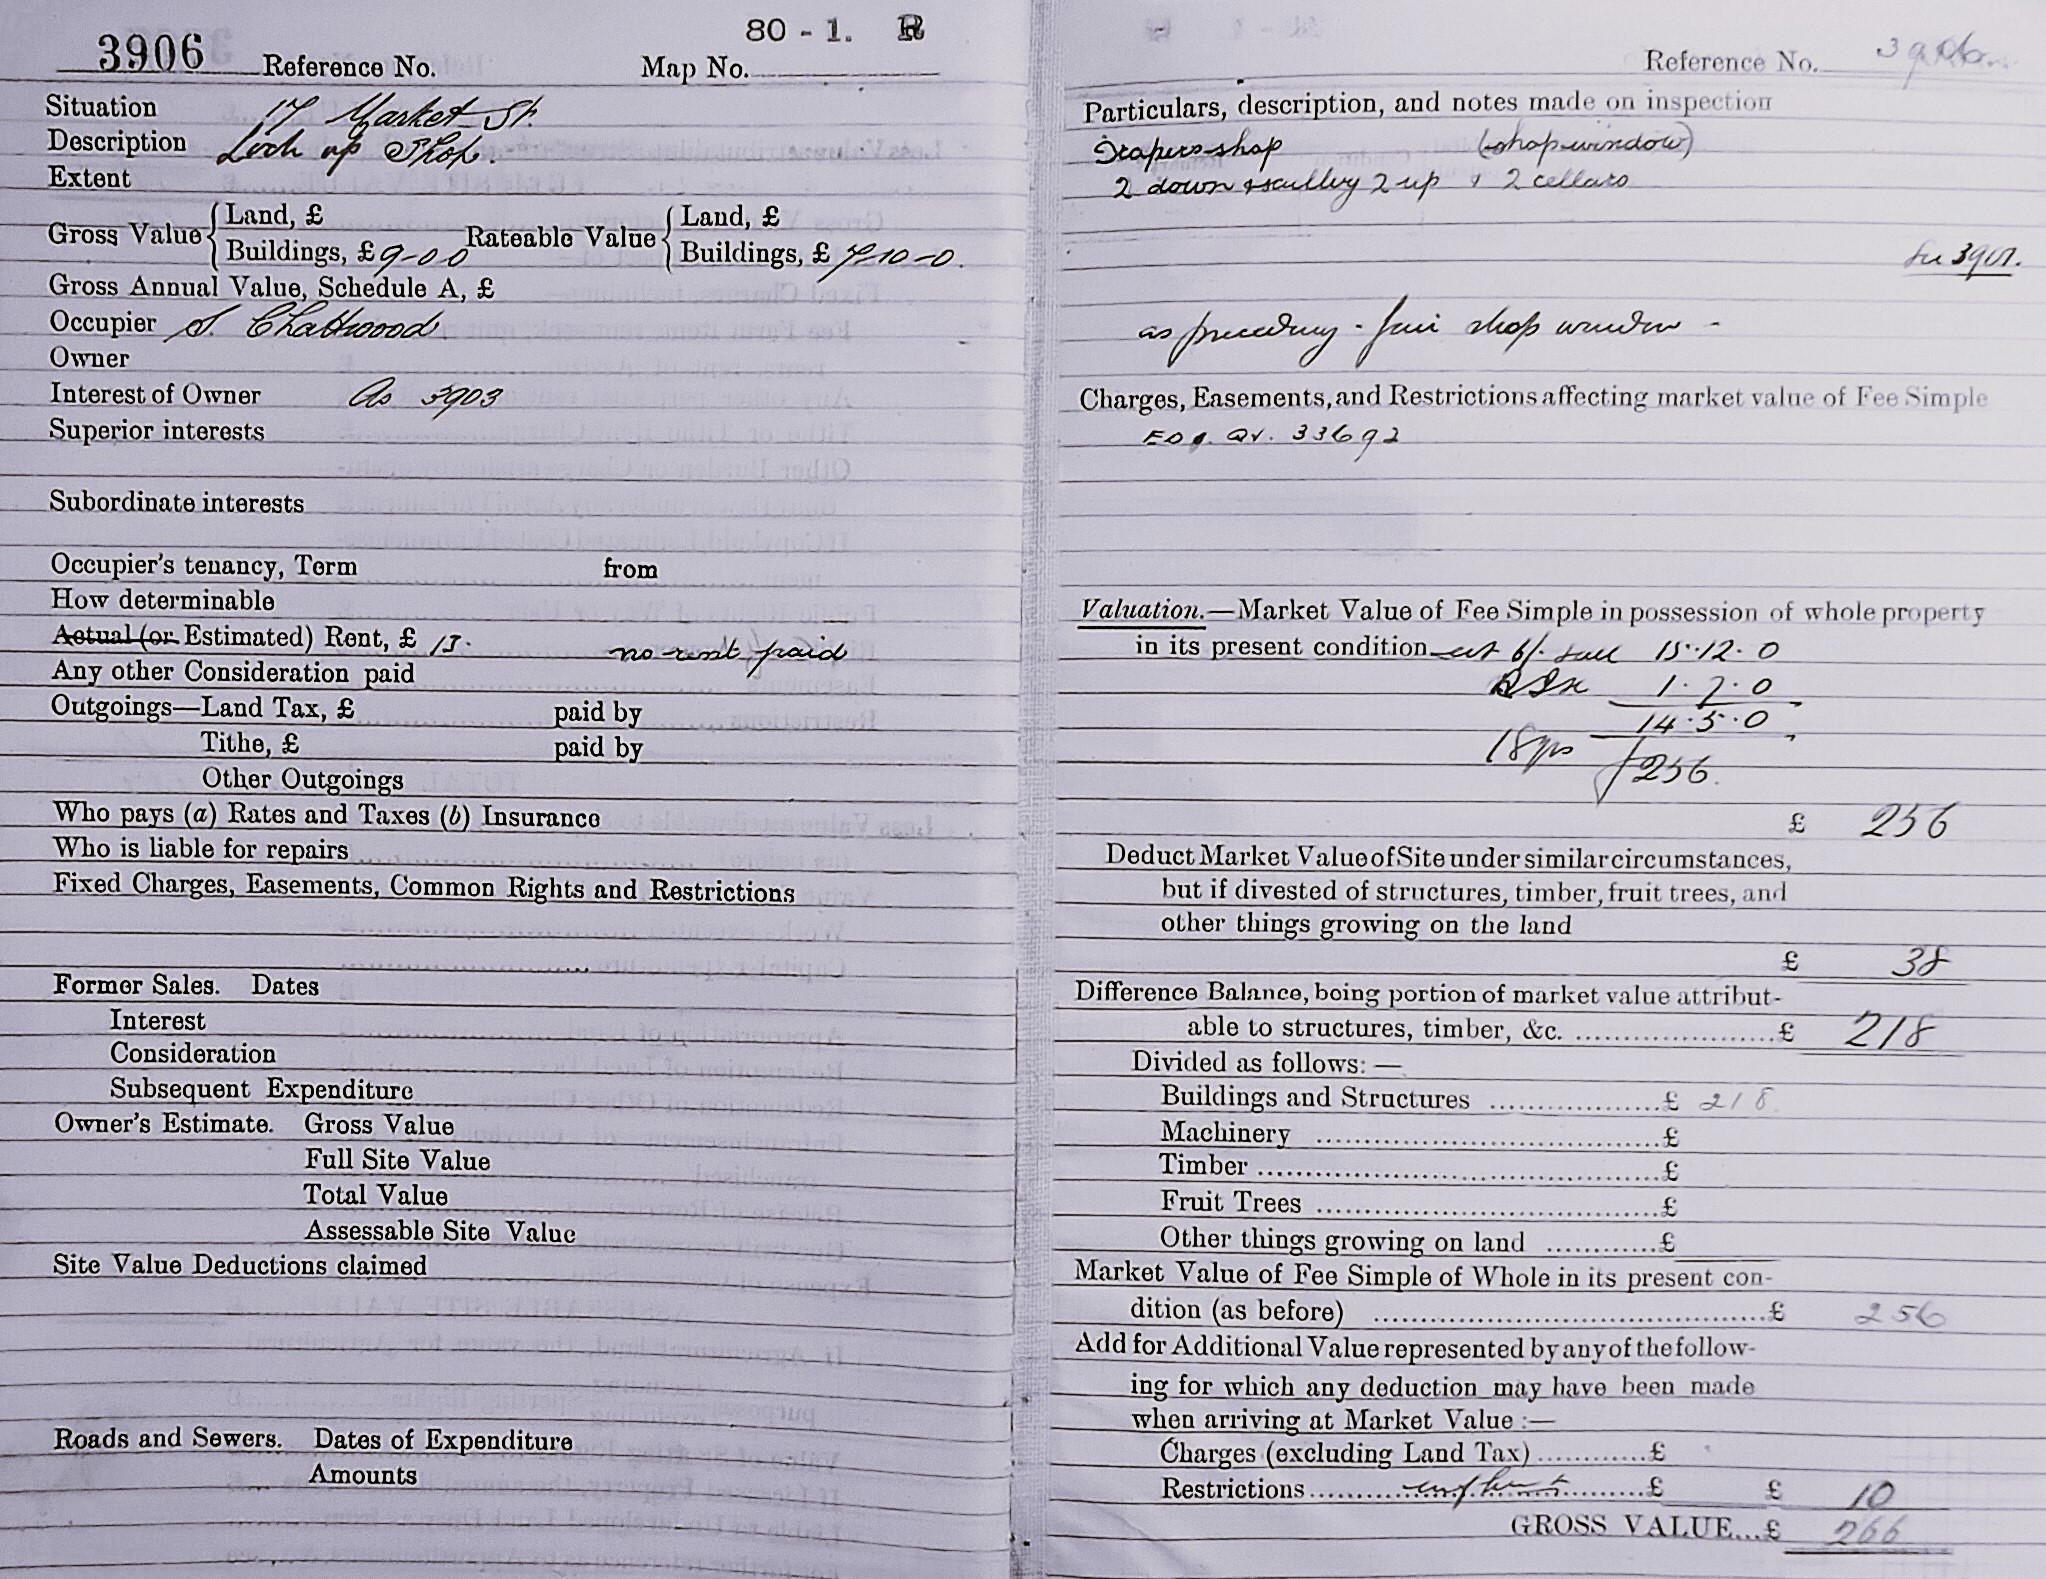 80 - 1. R
3906 Reference No. Map No.
Situation 17 Market St.
Description Lock up Shop.
Extent
Gross Value { Land, £ Rateable Value { Land, £
Buildings, £ 9-0-0 Buildings, £ 7-10-0.
Gross Annual Value, Schedule A, £
Occupier S. Chattwood.
Owner
Interest of Owner As 3903
Superior interests
Subordinate interests
Occupier's tenancy, Term from
How determinable
Actual (or Estimated) Rent, £ 13. no rent paid
Any other Consideration paid
Outgoings—Land Tax, £ paid by
Tithe, £ paid by
Other Outgoings
Who pays (a) Rates and Taxes (b) Insurance
Who is liable for repairs
Fixed Charges, Easements, Common Rights and Restrictions
Former Sales. Dates
Interest
Consideration
Subsequent Expenditure
Owner's Estimate. Gross Value
Full Site Value
Total Value
Assessable Site Value
Site Value Deductions claimed
Roads and Sewers. Dates of Expenditure
Amounts
Reference No. 3906
Particulars, description, and notes made on inspection
Drapers shop (shop window)
2 down & scullery 2 up & 2 cellars
See 3901.
as preceding - fair shop window -
Charges, Easements, and Restrictions affecting market value of Fee Simple
33692
Valuation.—Market Value of Fee Simple in possession of whole property
in its present condition 6/- 15.12.0
1.7.0
14.5.0
18 yrs 256.
£ 256
Deduct Market Value of Site under similar circumstances,
but if divested of structures, timber, fruit trees, and
other things growing on the land
£ 38
Difference Balance, being portion of market value attribut-
able to structures, timber, &c. £ 218
Divided as follows:—
Buildings and Structures £ 218
Machinery £
Timber £
Fruit Trees £
Other things growing on land £
Market Value of Fee Simple of Whole in its present con-
dition (as before) £ 256
Add for Additional Value represented by any of the follow-
ing for which any deduction may have been made
when arriving at Market Value:—
Charges (excluding Land Tax) £
Restrictions £ £ 10
GROSS VALUE...£ 266